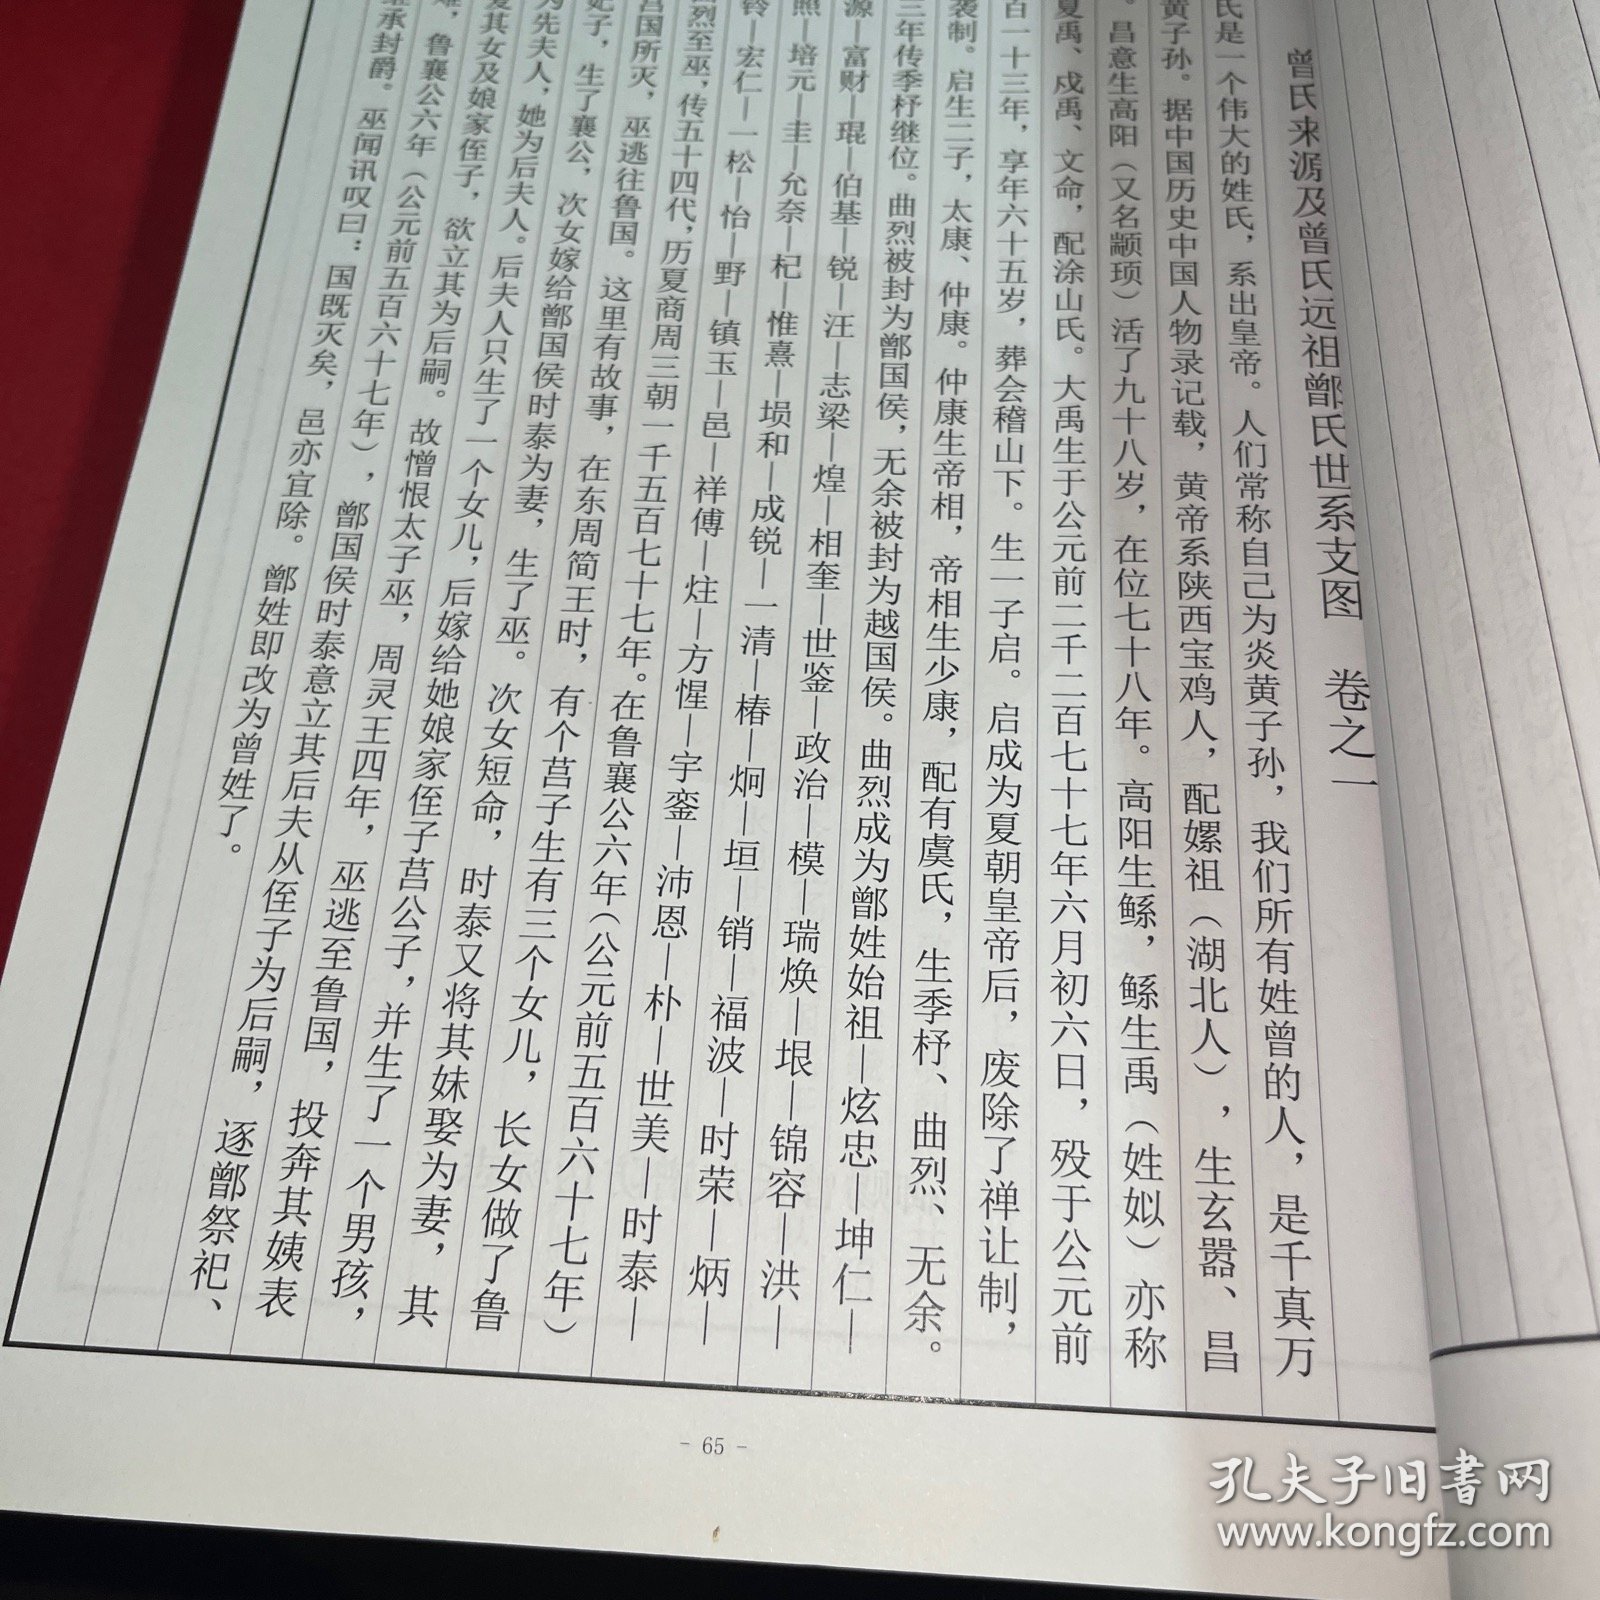 曾氏来源及曾氏远祖鄫氏世系支图 卷之一
氏是一个伟大的姓氏，系出皇帝。人们常称自己为炎黄子孙，我们所有姓曾的人，是千真万
黄子孙。据中国历史中国人物录记载，黄帝系陕西宝鸡人，配嫘祖（湖北人），生玄嚣、昌
。昌意生高阳（又名颛顼）活了九十八岁，在位七十八年。高阳生鲧，鲧生禹（姓姒）亦称
夏禹、戍禹、文命，配涂山氏。大禹生于公元前二千二百七十七年六月初六日，殁于公元前
百一十三年，享年六十五岁，葬会稽山下。生一子启。启成为夏朝皇帝后，废除了禅让制，
袭制。启生二子，太康、仲康。仲康生帝相，帝相生少康，配有虞氏，生季杼、曲烈、无余。
三年传季杼继位。曲烈被封为鄫国侯，无余被封为越国侯。曲烈成为鄫姓始祖—炫忠—坤仁—
源—富财—琨—伯基—锐—汪—志梁—煌—相奎—世鉴—政治—模—瑞焕—垠—锦容—洪—
照—培元—圭—允奈—杞—惟熹—埙和—成锐—一清—椿—炯—垣—销—福波—时荣—炳—
铃—宏仁—一松—怡—野—镇玉—邑—祥傅—炷—方惺—宇銮—沛恩—朴—世美—时泰—
烈至巫，传五十四代，历夏商周三朝一千五百七十七年。在鲁襄公六年（公元前五百六十七年）
莒国所灭，巫逃往鲁国。这里有故事，在东周简王时，有个莒子生有三个女儿，长女做了鲁
妃子，生了襄公，次女嫁给鄫国侯时泰为妻，生了巫。次女短命，时泰又将其妹娶为妻，其
为先夫人，她为后夫人。后夫人只生了一个女儿，后嫁给她娘家侄子莒公子，并生了一个男孩，
爱其女及娘家侄子，欲立其为后嗣。故憎恨太子巫，周灵王四年，巫逃至鲁国，投奔其姨表
，鲁襄公六年（公元前五百六十七年），鄫国侯时泰意立其后夫从侄子为后嗣，逐鄫祭祀、
继承封爵。巫闻讯叹曰：国既灭矣，邑亦宜除。鄫姓即改为曾姓了。
- 65 -
孔夫子旧书网
www.kongfz.com